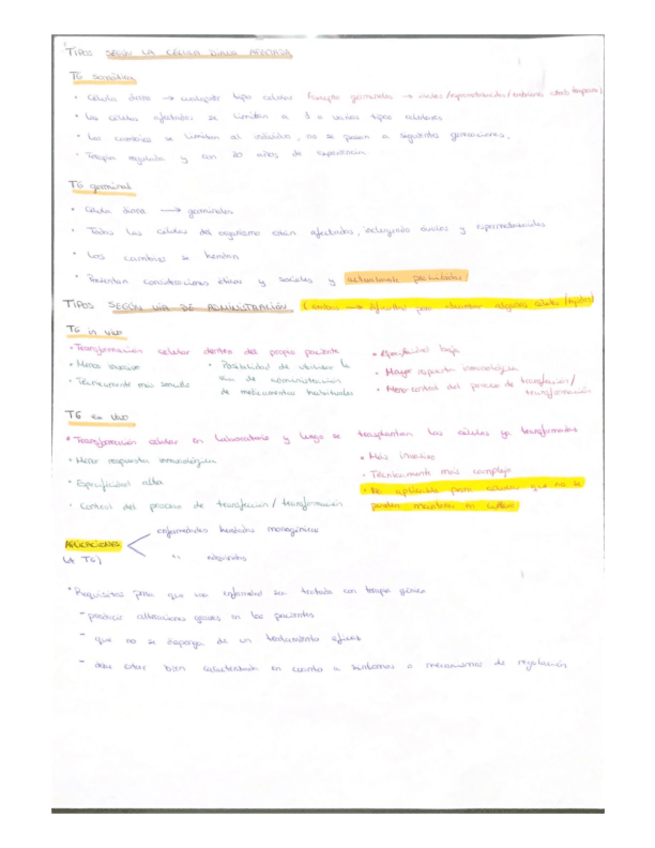 TIPOS SEGÚN LA CÉLULA DIANA AFECTADA
TG somática
· Célula diana → cualquier tipo celular (excepto germinales →
· Las células afectadas se limitan a 1 o varios tipos celulares
· Los cambios se limitan al individuo, no se pasan a siguientes generaciones.
· Terapia regulada y con 20 años de experiencia.
TG germinal
· Célula diana → germinales
· Todas las células del organismo están afectadas, incluyendo óvulos y espermatozoides
· Los cambios se heredan
· Presentan consideraciones éticas y sociales y actualmente prohibidas
TIPOS SEGÚN VÍA DE ADMINISTRACIÓN → dificultad para alcanzar algunas células/tejidos)
TG in vivo
· Transformación celular dentro del propio paciente
· Menos invasivo
· Técnicamente más sencillo
· Posibilidad de utilizar la
vía de administración
de medicamentos habituales
· Especificidad baja
· Mayor respuesta inmunológica
· Menor control del proceso de transfección/
transformación
TG ex vivo
· Transformación celular en laboratorio y luego se trasplantan las células ya transformadas
· Menor respuesta inmunológica
· Especificidad alta
· Control del proceso de transfección/transformación
· Más invasivo
· Técnicamente más complejo
· No aplicable para células que no se
pueden mantener en cultivo
APLICACIONES
(A TG)
enfermedades heredadas monogénicas
" adquiridas
* Requisitos para que una enfermedad sea tratada con terapia génica
- producir alteraciones graves en los pacientes
- que no se disponga de un tratamiento eficaz
- debe estar bien caracterizada en cuanto a síntomas o mecanismos de regulación